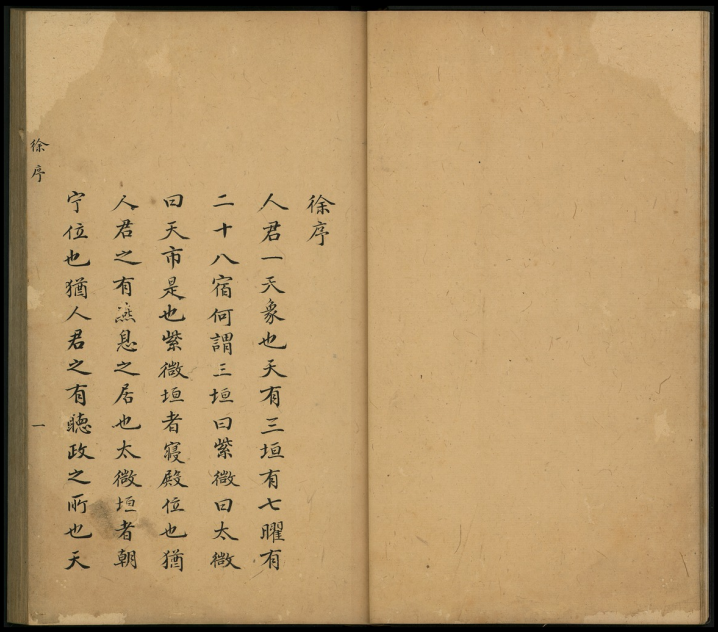 徐序
人君一天象也天有三垣有七曜有
二十八宿何謂三垣曰紫微曰太微
曰天市是也紫微垣者寢殿位也猶
人君之有燕息之居也太微垣者朝
宁位也猶人君之有聽政之所也天
徐序
一